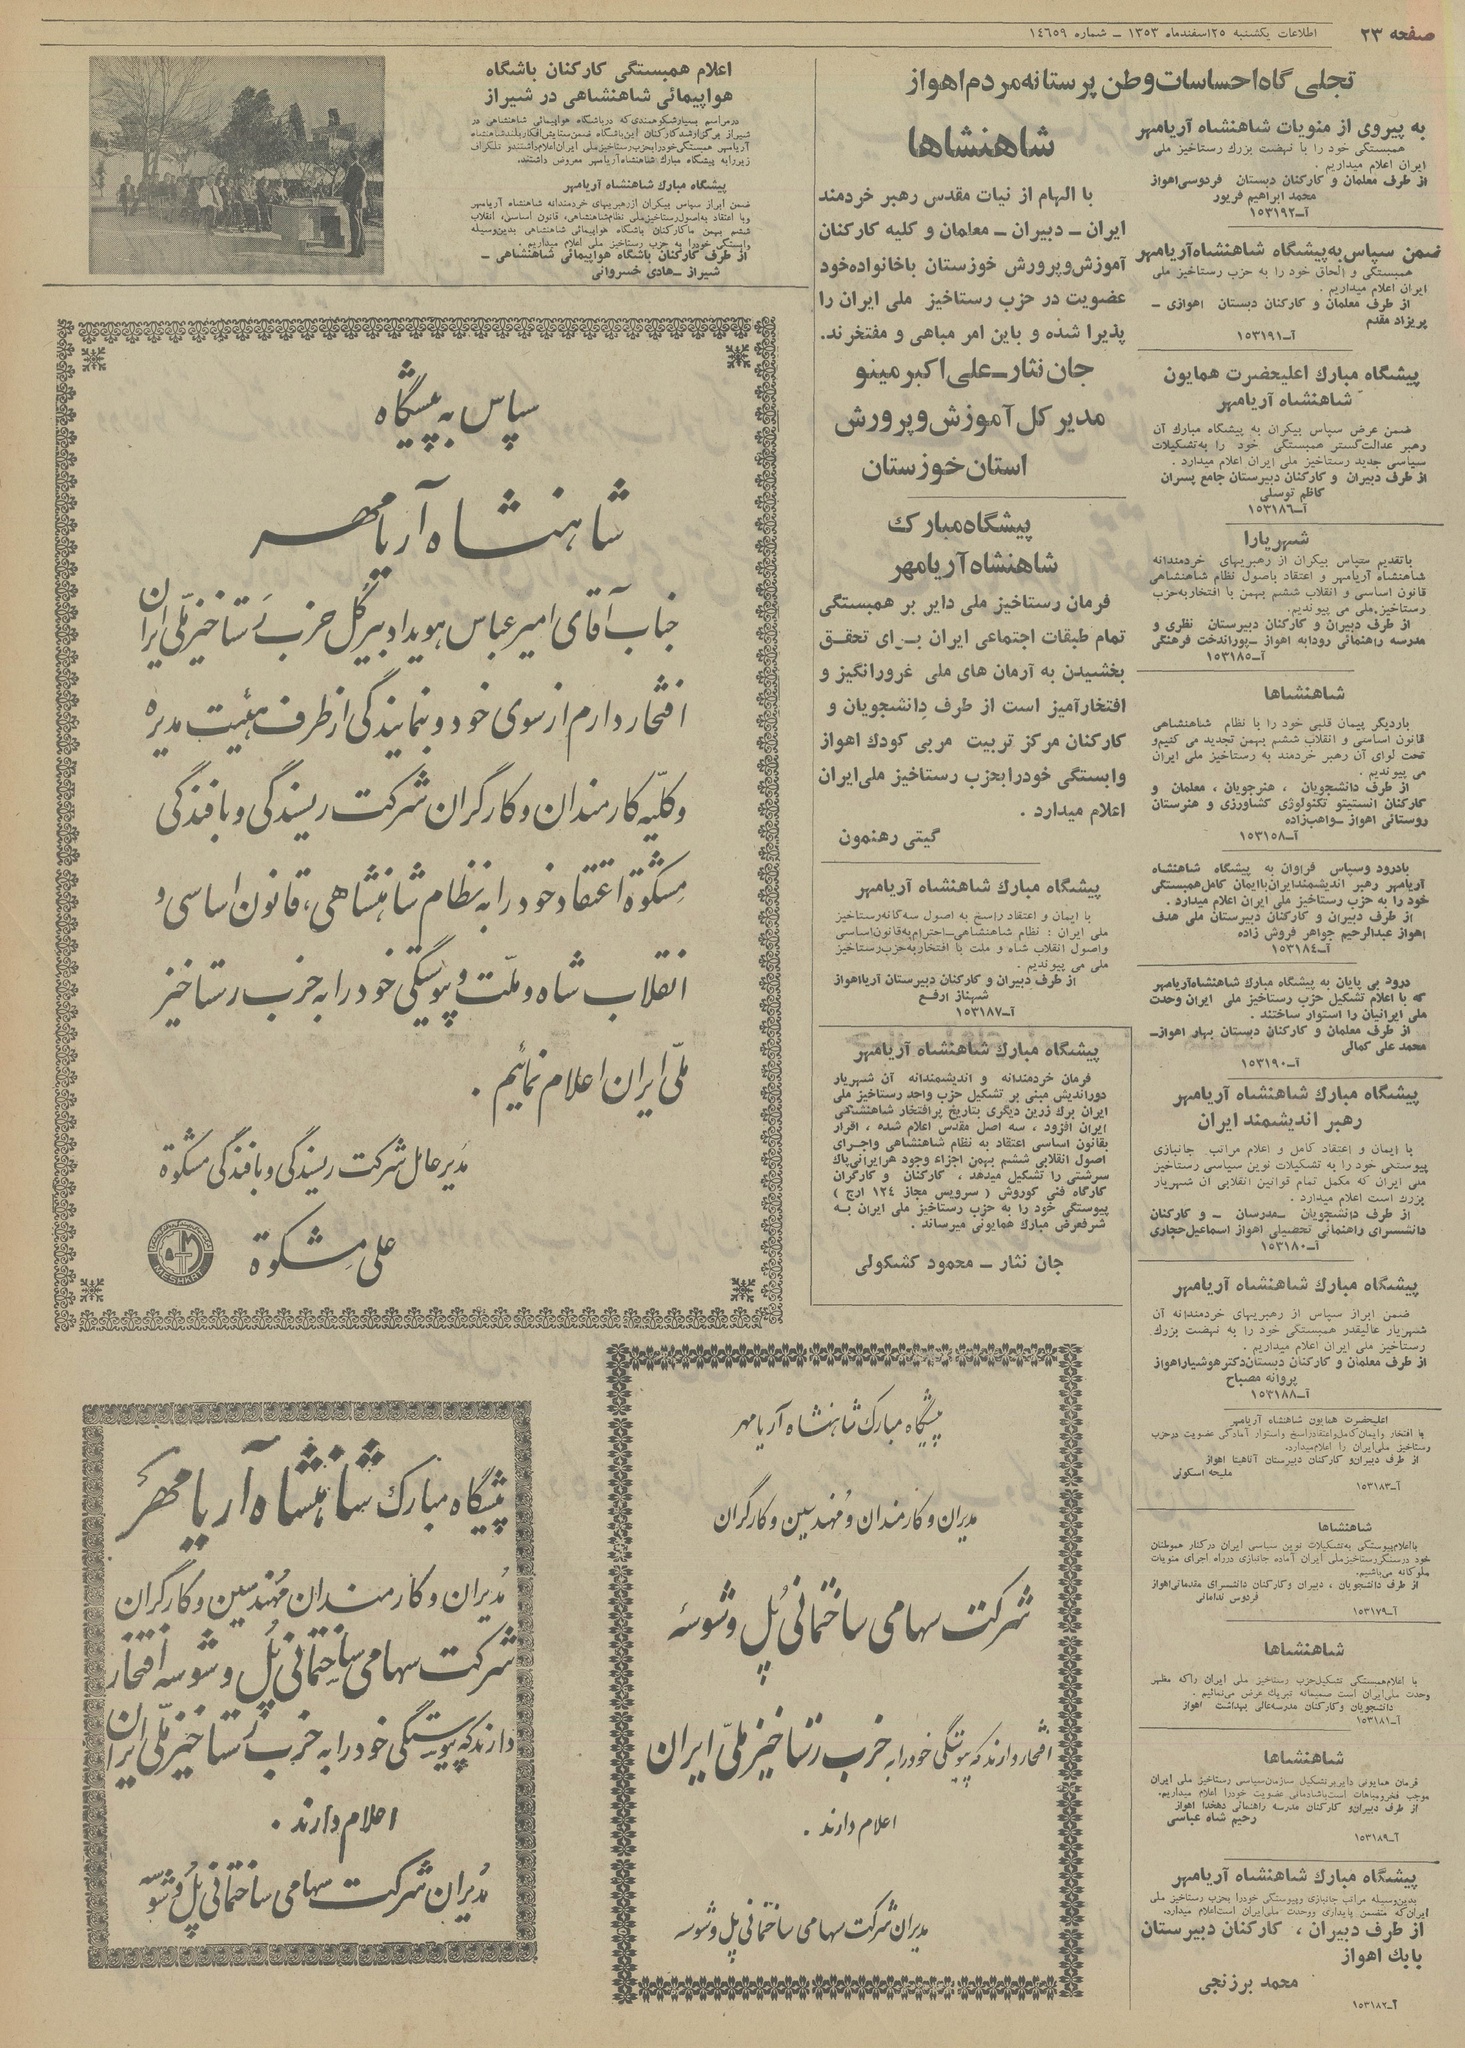 صفحه ۲۳
اطلاعات یکشنبه ۲۵ اسفندماه ۱۳۵۳ ـ شماره ۱٤٦٥۹
تجلی گاه احساسات وطن پرستانه مردم اهواز
به پیروی از منویات شاهنشاه آریامهر
همبستگی خود را با نهضت بزرك رستاخیز ملی
ایران اعلام میداریم .
از طرف معلمان و کارکنان دبستان فردوسی اهواز
محمد ابراهیم فریور
آـ۱٥۳۱۹۲
ضمن سپاس به پیشگاه شاهنشاه آریامهر
همبستگی و الحاق خود را به حزب رستاخیز ملی
ایران اعلام میداریم .
از طرف معلمان و کارکنان دبستان اهوازی ـ
پریزاد مقدم
آـ۱٥۳۱۹۱
پیشگاه مبارك اعلیحضرت همایون
شاهنشاه آریامهر
ضمن عرض سپاس بیکران به پیشگاه مبارك آن
رهبر عدالت‌گستر همبستگی خود را به تشکیلات
سیاسی جدید رستاخیز ملی ایران اعلام میدارد .
از طرف دبیران و کارکنان دبیرستان جامع پسران
کاظم توسلی
آـ۱٥۳۱۸٦
شهریارا
با تقدیم سپاس بیکران از رهبریهای خردمندانه
شاهنشاه آریامهر و اعتقاد باصول نظام شاهنشاهی
قانون اساسی و انقلاب ششم بهمن با افتخار به حزب
رستاخیز ملی می پیوندیم.
از طرف دبیران و کارکنان دبیرستان نظری و
مدرسه راهنمائی رودابه اهواز ـ پوراندخت فرهنگی
آـ۱٥۳۱۸٥
شاهنشاها
باردیگر پیمان قلبی خود را با نظام شاهنشاهی
قانون اساسی و انقلاب ششم بهمن تجدید می کنیم و
تحت لوای آن رهبر خردمند به رستاخیز ملی ایران
می پیوندیم .
از طرف دانشجویان ، هنرجویان ، معلمان و
کارکنان انستیتو تکنولوژی کشاورزی و هنرستان
روستائی اهواز ـ واهب‌زاده
آـ۱٥۳۱٥۸
بادرود وسپاس فراوان به پیشگاه شاهنشاه
آریامهر رهبر اندیشمند ایران با ایمان کامل همبستگی
خود را به حزب رستاخیز ملی ایران اعلام میدارد .
از طرف دبیران و کارکنان دبیرستان ملی هدف
اهواز عبدالرحیم جواهر فروش زاده
آـ۱٥۳۱۸٤
درود بی پایان به پیشگاه مبارك شاهنشاه آریامهر
که با اعلام تشکیل حزب رستاخیز ملی ایران وحدت
ملی ایرانیان را استوار ساختند .
از طرف معلمان و کارکنان دبستان بهار اهواز ـ
محمد علی کمالی
آـ۱٥۳۱۹۰
پیشگاه مبارك شاهنشاه آریامهر
رهبر اندیشمند ایران
با ایمان و اعتقاد کامل و اعلام مراتب جانبازی
پیوستگی خود را به تشکیلات نوین سیاسی رستاخیز
ملی ایران که مکمل تمام قوانین انقلابی آن شهریار
بزرك است اعلام میدارد .
از طرف دانشجویان ـ مدرسان ـ و کارکنان
دانشسرای راهنمائی تحصیلی اهواز اسماعیل حجاری
آـ۱٥۳۱۸۰
پیشگاه مبارك شاهنشاه آریامهر
ضمن ابراز سپاس از رهبریهای خردمندانه آن
شهریار عالیقدر همبستگی خود را به نهضت بزرك
رستاخیز ملی ایران اعلام میداریم .
از طرف معلمان و کارکنان دبستان دکتر هوشیار اهواز
پروانه مصباح
آـ۱٥۳۱۸۸
اعلیحضرت همایون شاهنشاه آریامهر
با افتخار و ایمان کامل و اعتقاد راسخ و استوار آمادگی عضویت در حزب
رستاخیز ملی ایران را اعلام میدارد.
از طرف دبیران و کارکنان دبیرستان آناهیتا اهواز
ملیحه اسکوئی
آـ۱٥۳۱۸۳
شاهنشاها
با اعلام پیوستگی به تشکیلات نوین سیاسی ایران در کنار هموطنان
خود در سنگر رستاخیز ملی ایران آماده جانبازی در راه اجرای منویات
ملوکانه می‌باشیم.
از طرف دانشجویان ، دبیران وکارکنان دانشسرای مقدماتی اهواز
فردوس ندامانی
آـ۱٥۳۱۷۹
شاهنشاها
با اعلام همبستگی تشکیل حزب رستاخیز ملی ایران راکه مظهر
وحدت ملی ایران است صمیمانه تبریك عرض می‌نمائیم .
دانشجویان وکارکنان مدرسه عالی بهداشت اهواز
آـ۱٥۳۱۸۱
شاهنشاها
فرمان همایونی دایر بر تشکیل سازمان سیاسی رستاخیز ملی ایران
موجب فخر و مباهات است باشادمانی عضویت خود را اعلام میداریم.
از طرف دبیران و کارکنان مدرسه راهنمائی دهخدا اهواز
رحیم شاه عباسی
آـ۱٥۳۱۸۹
پیشگاه مبارك شاهنشاه آریامهر
بدین وسیله مراتب جانبازی وپیوستگی خود را بحزب رستاخیز ملی
ایران که متضمن پایداری و وحدت ملی ایران است اعلام میدارد.
از طرف دبیران ، کارکنان دبیرستان
بابك اهواز
محمد برزنجی
آـ۱٥۳۱۸۲
شاهنشاها
با الهام از نیات مقدس رهبر خردمند
ایران ـ دبیران ـ معلمان و کلیه کارکنان
آموزش و پرورش خوزستان با خانواده خود
عضویت در حزب رستاخیز ملی ایران را
پذیرا شده و باین امر مباهی و مفتخرند.
جان نثار ـ علی اکبر مینو
مدیر کل آموزش و پرورش
استان خوزستان
پیشگاه مبارك
شاهنشاه آریامهر
فرمان رستاخیز ملی دایر بر همبستگی
تمام طبقات اجتماعی ایران برای تحقق
بخشیدن به آرمان های ملی غرورانگیز و
افتخارآمیز است از طرف دانشجویان و
کارکنان مرکز تربیت مربی کودك اهواز
وابستگی خودرا بحزب رستاخیز ملی ایران
اعلام میدارد .
گیتی رهنمون
پیشگاه مبارك شاهنشاه آریامهر
با ایمان و اعتقاد راسخ به اصول سه گانه رستاخیز
ملی ایران : نظام شاهنشاهی ـ احترام به قانون اساسی
واصول انقلاب شاه و ملت با افتخار به حزب رستاخیز
ملی می پیوندیم .
از طرف دبیران و کارکنان دبیرستان آریا اهواز
شهناز ارفع
آـ۱٥۳۱۸۷
پیشگاه مبارك شاهنشاه آریامهر
فرمان خردمندانه و اندیشمندانه آن شهریار
دوراندیش مبنی بر تشکیل حزب واحد رستاخیز ملی
ایران برك زرین دیگری بتاریخ پرافتخار شاهنشاهی
ایران افزود ، سه اصل مقدس اعلام شده ، اقرار
بقانون اساسی اعتقاد به نظام شاهنشاهی واجرای
اصول انقلابی ششم بهمن اجزاء وجود هر ایرانی پاك
سرشتی را تشکیل میدهد ، کارکنان و کارگران
کارگاه فنی کوروش ( سرویس مجاز ۱۲٤ ارج )
پیوستگی خود را به حزب رستاخیز ملی ایران بـه
شرفعرض مبارك همایونی میرساند .
جان نثار ـ محمود کشکولی
اعلام همبستگی کارکنان باشگاه
هواپیمائی شاهنشاهی در شیراز
در مراسم بسیار شکوهمندی که در باشگاه هواپیمائی شاهنشاهی در
شیراز برگزار شد کارکنان این باشگاه ضمن ستایش افکار بلند شاهنشاه
آریامهر همبستگی خودرا بحزب رستاخیز ملی ایران اعلام داشتند و تلگراف
زیر را به پیشگاه مبارك شاهنشاه آریامهر معروض داشتند.
پیشگاه مبارك شاهنشاه آریامهر
ضمن ابراز سپاس بیکران از رهبریهای خردمندانه شاهنشاه آریامهر
وبا اعتقاد به اصول رستاخیز ملی نظام شاهنشاهی، قانون اساسی، انقلاب
ششم بهمن ما کارکنان باشگاه هواپیمائی شاهنشاهی بدین وسیله
وابستگی خودرا به حزب رستاخیز ملی اعلام میداریم .
از طرف کارکنان باشگاه هواپیمائی شاهنشاهی ـ
شیراز ـ هادی خسروانی
سپاس به پیشگاه
شاهنشاه آریامهر
جناب آقای امیرعباس هویدا دبیر کل حزب رستاخیز ملّی ایران
افتخار دارم از سوی خود و بنمایندگی از طرف هئیت مدیره
و کلیّه کارمندان و کارگران شرکت ریسندگی و بافندگی
مشکوة اعتقاد خود را به نظام شاهنشاهی، قانون اساسی و
انقلاب شاه و ملّت و پیوستگی خود را به حزب رستاخیز
ملّی ایران اعلام نمائیم .
مدیر عامل شرکت ریسندگی و بافندگی مشکوة
علی مشکوة
MESHKAT
پیشگاه مبارک شاهنشاه آریامهر
مدیران و کارمندان و مهندسین و کارگران
شرکت سهامی ساختمانی پُل و شوسه
افتخار دارند که پیوستگی خود را به حزب رستاخیز ملّی ایران
اعلام دارند .
مدیران شرکت سهامی ساختمانی پل و شوسه
پیشگاه مبارک شاهنشاه آریامهر
مُدیران و کارمندان مُهندسین و کارگران
شرکت سهامی ساختمانی پُل و شوسه افتخار
دارند که پیوستگی خود را به حزب رستاخیز ملّی ایران
اعلام دارند .
مُدیران شرکت سهامی ساختمانی پُل و شوسه